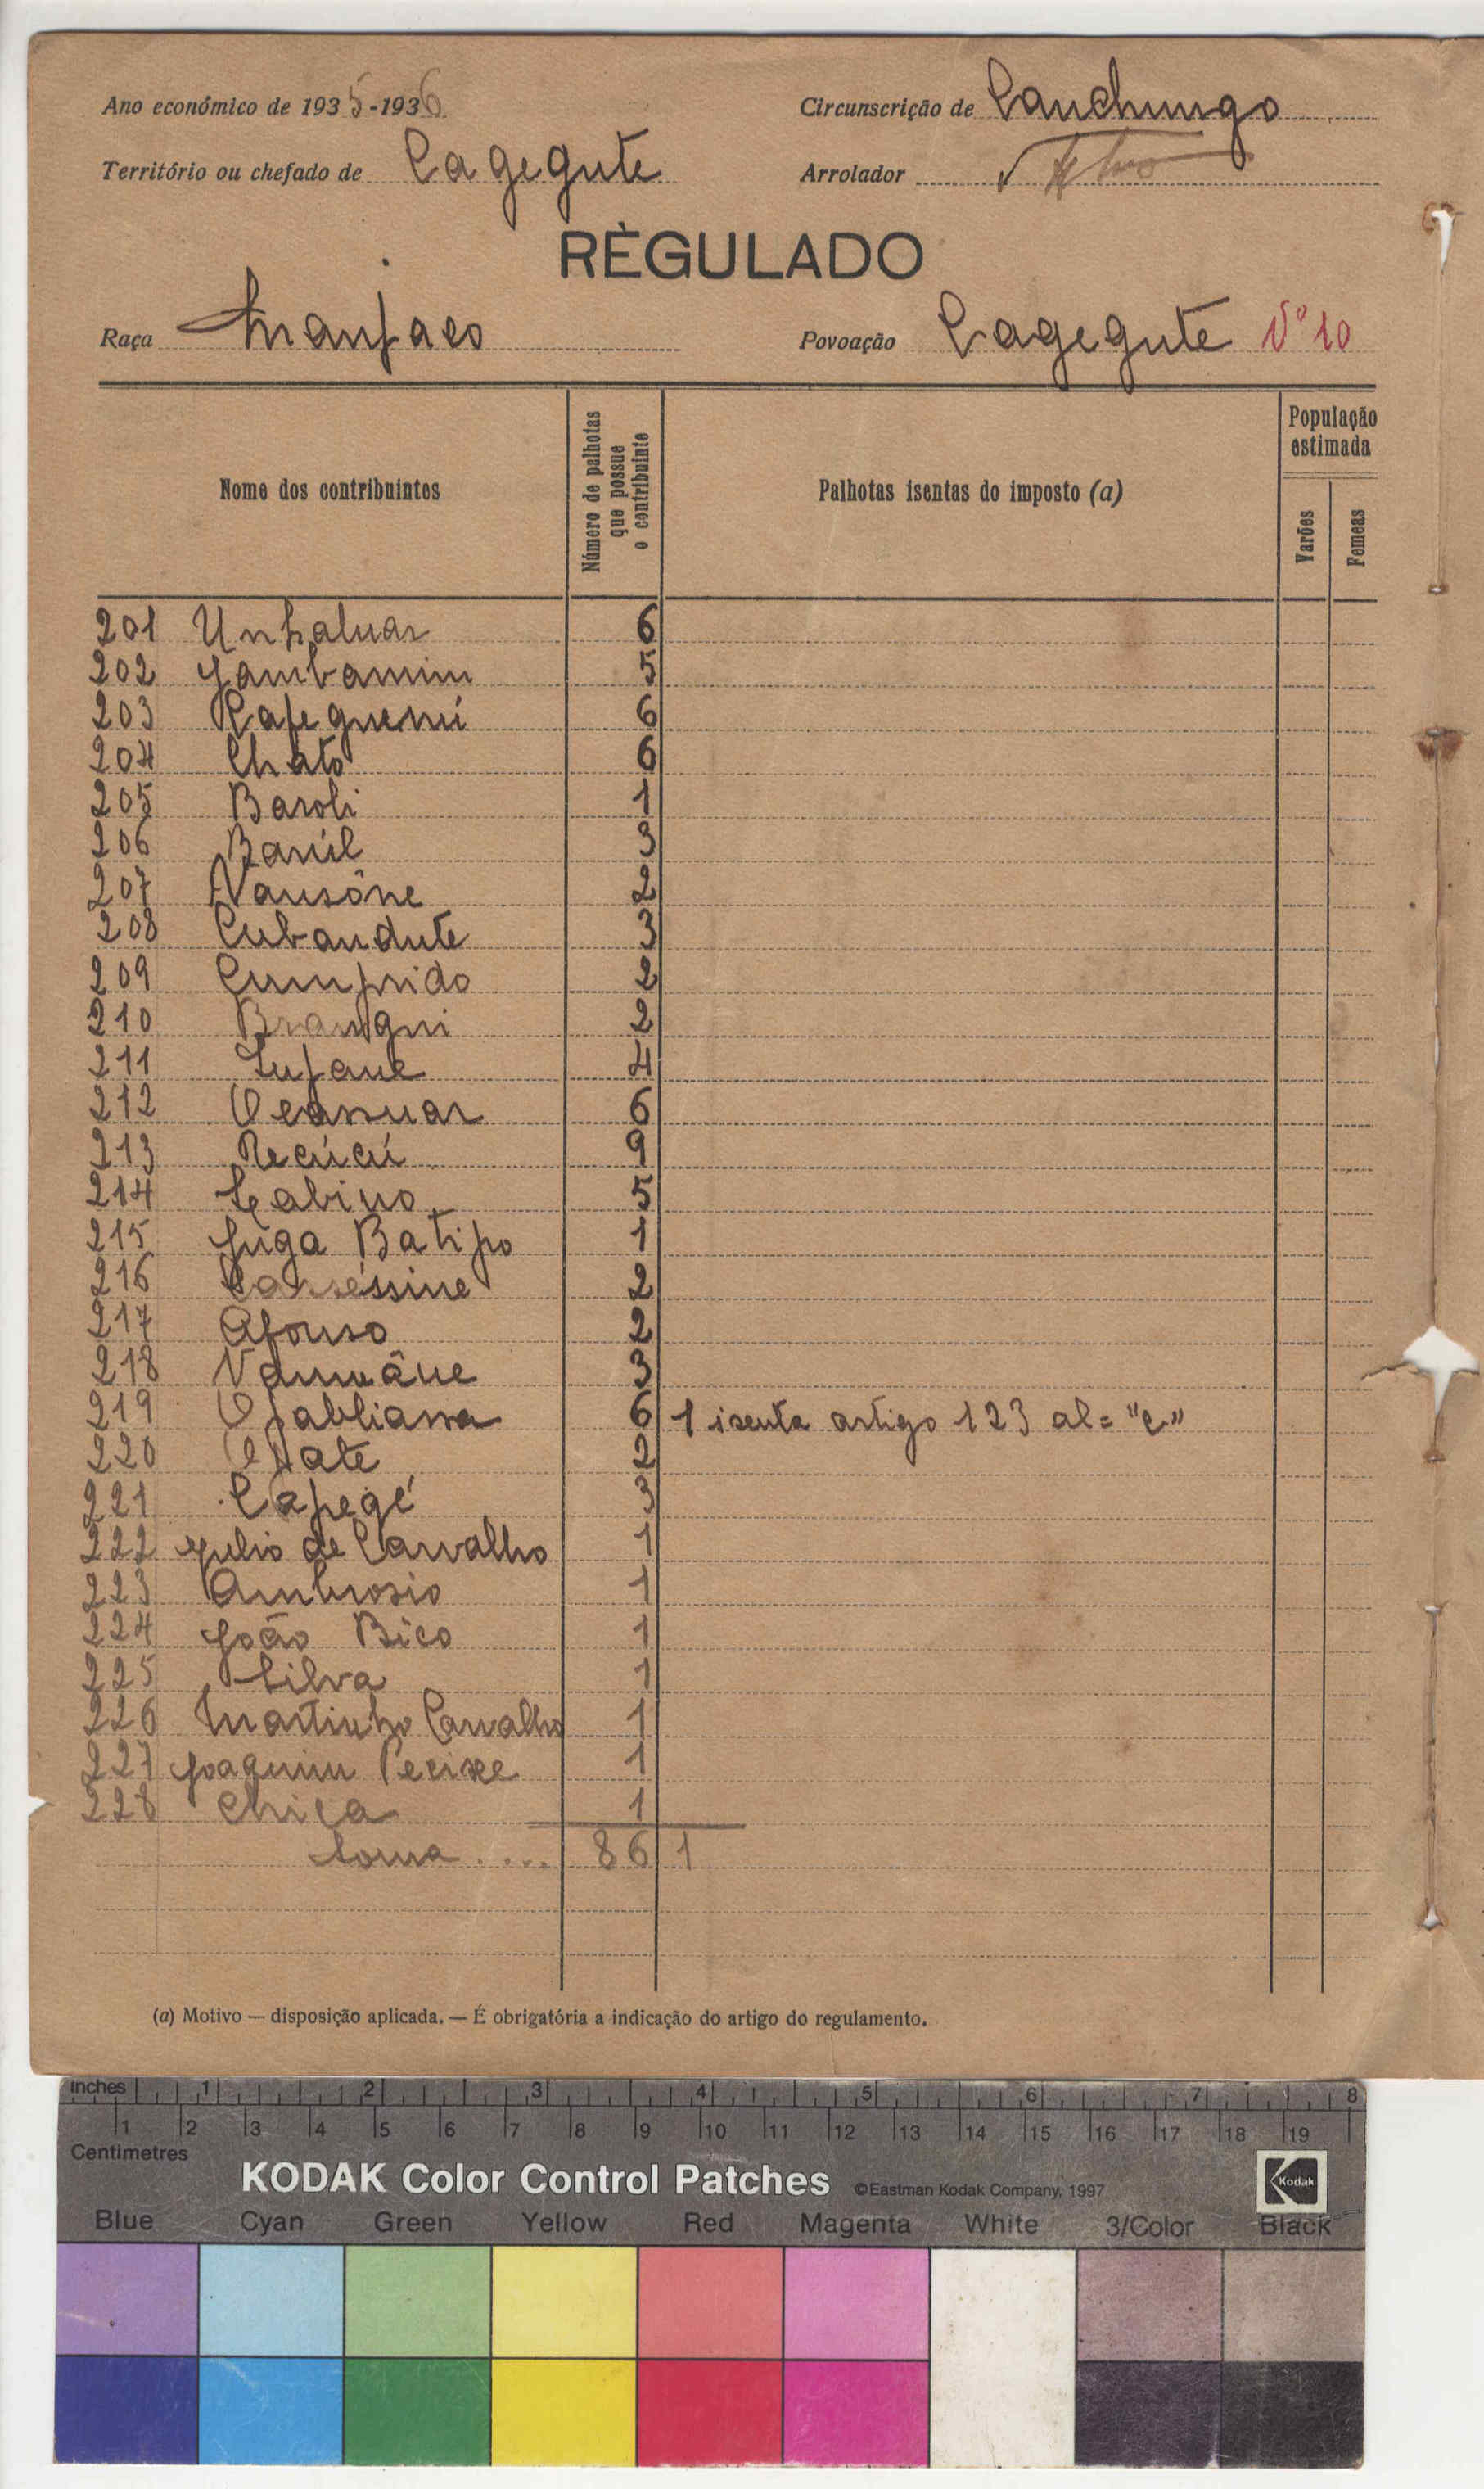 Ano económico de 1935-1936
Circunscrição de Canchungo
Território ou chefado de Cagegute
Arrolador
RÈGULADO
Raça Manjaco
Povoação Cagegute Nº 10
Nome dos contribuintes
Número de palhotas que possue o contribuinte
Palhotas isentas do imposto (a)
População estimada
Varões
Femeas
201 Unhaluar 6
202 Jambamim 5
203 6
204 Chato 6
205 Baroli 1
206 Banúl 3
207 Nausône 2
208 Cubandute 3
209 Cumprido 2
210 Brangui 2
211 4
212 6
213 Recúcú 9
214 Sabino 5
215 Juga Batipo 1
216 2
217 Afonso 2
218 3
219 6 1 isenta artigo 123 al= "c"
220 2
221 Capegé 3
222 Julio de Carvalho 1
223 Ambrosio 1
224 João Bico 1
225 Silva 1
226 Martinho Carvalho 1
227 Joaquim 1
228 Chica 1
Soma .... 86 1
(a) Motivo — disposição aplicada. — É obrigatória a indicação do artigo do regulamento.
inches 1 2 3 4 5 6 7 8
1 2 3 4 5 6 7 8 9 10 11 12 13 14 15 16 17 18 19
Centimetres
KODAK Color Control Patches ©Eastman Kodak Company, 1997
Kodak
Blue Cyan Green Yellow Red Magenta White 3/Color Black